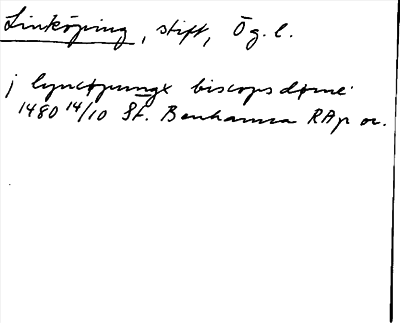 Linköping, stift, Ög. l.
j lyncøpungx biscopsdøme
1480 14/10 St. Benhamra RAp or.